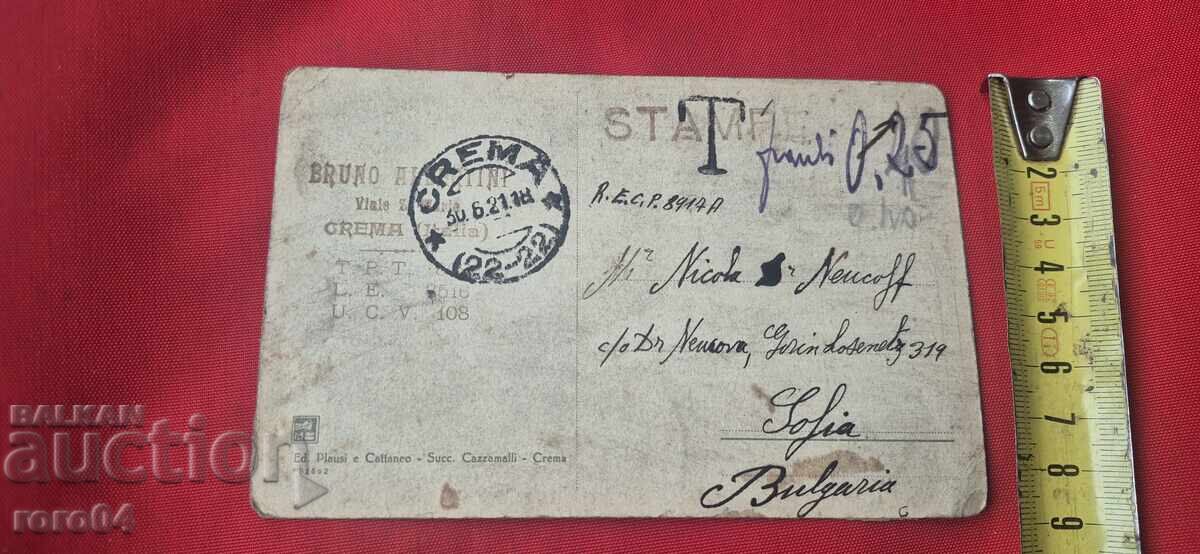 STAMPE
T
franchi 0,25
BRUNO
Viale
CREMA (Italia)
T. P. T.
L. E. 8516
U. C. V. 108
CREMA
30.6.21.18
(22-22)
R.E.C.P. 8917A
Mr Nicola Neucoff
c/o Dr Neucova, Gorin Losenetz 319
Sofia
Bulgaria
Ed. Plausi e Cattaneo - Succ. Cazzamalli - Crema
BALKAN
auction
roro64
2 3 4 5 6 7 8 9
5m